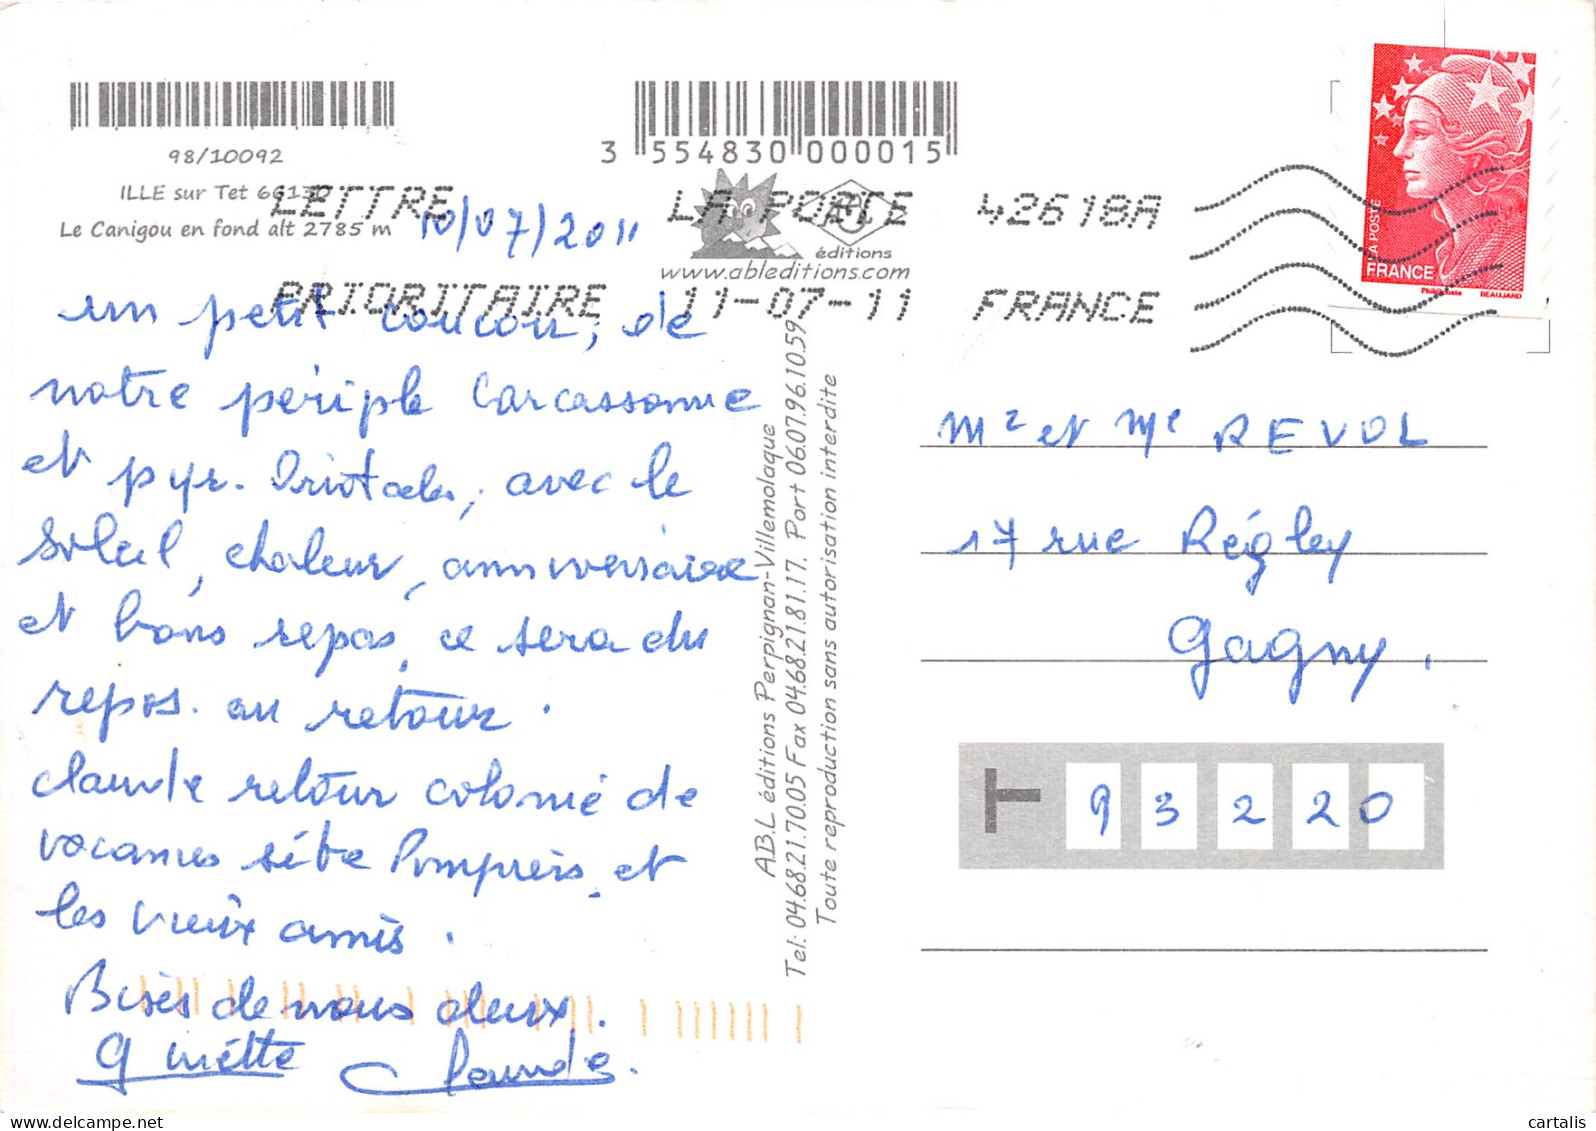 98/10092
ILLE sur Tet 66130
Le Canigou en fond alt 2785 m
3 554830 000015
éditions
www.ableditions.com
LETTRE
PRIORITAIRE
LA POSTE
11-07-11
42618A
FRANCE
LA POSTE
FRANCE
Phil@poste BEAUJARD
10/07/2011
un petit coucou, de
notre périple Carcassonne
et pyr. Orientales, avec le
soleil, chaleur, anniversaire
et bons repas, ce sera du
repos. au retour.
Claude retour colonie de
vacances site Pompreis, et
les vieux amis.
Bises de nous deux.
Ginette Claude.
A.B.L éditions Perpignan-Villemolaque
Tel: 04.68.21.70.05 Fax 04.68.21.81.17. Port 06.07.96.10.59
Toute reproduction sans autorisation interdite
Mr et Me REVOL
17 rue Régley
Gagny.
93220
cartalis